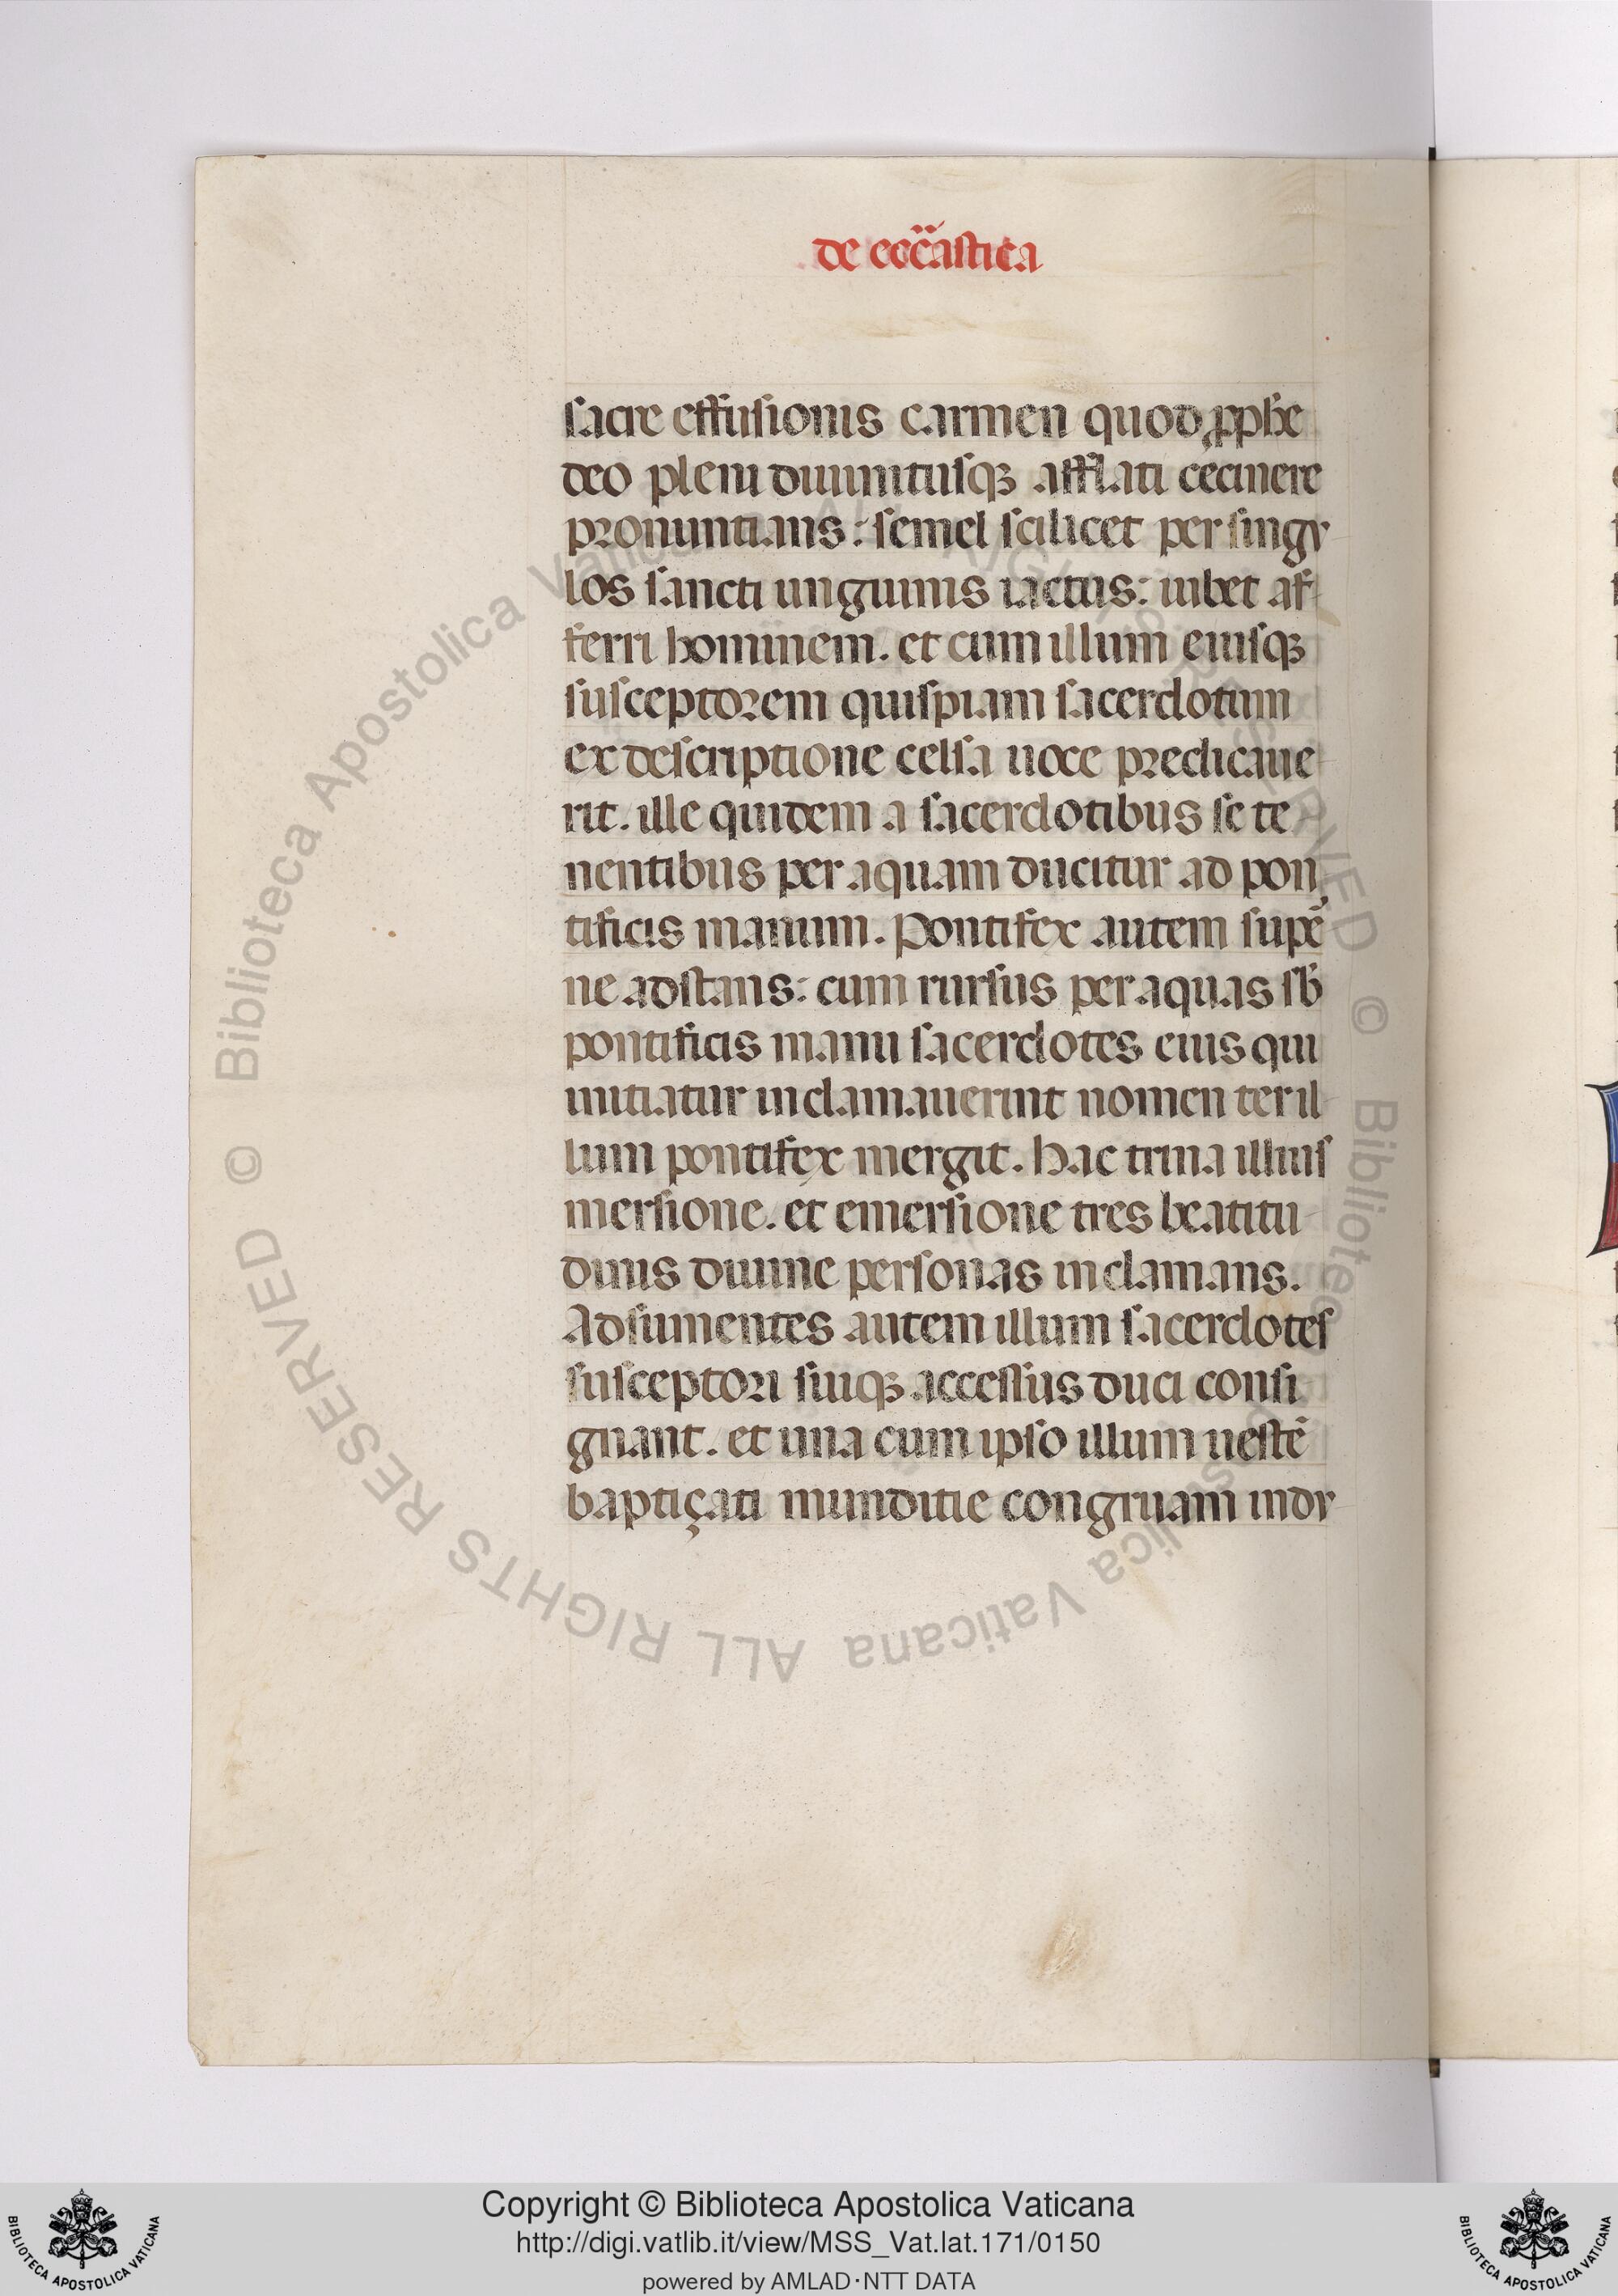 de ecc̈astica
sacre effusionis carmen quod ꝓphe
deo pleni diuinitusqꝫ afflati cecinere
pronuntians: semel scilicet per singu
los sancti unguinis iactus: iubet af
ferri hominem. et cum illum eiusqꝫ
susceptorem quispiam sacerdotum
ex descriptione celsa uoce predicaue
rit. ille quidem a sacerdotibus se te
nentibus per aquam ducitur ad pon
tificis manum. Pontifex autem supẽ
ne adstans: cum rursus per aquas sb̃
pontificis manu sacerdotes eius qui
initiatur inclamauerint nomen ter il
lum pontifex mergit. hac trina illius
mersione. et emersione tres beatitu
dinis diuine personas inclamans.
Adsumentes autem illum sacerdotes
susceptori suiqꝫ accessus duci consi
gnant. et una cum ipso illum uestẽ
baptiçati munditie congruam indu
© Biblioteca Apostolica Vaticana ALL RIGHTS RESERVED
© Biblioteca Apostolica Vaticana ALL RIGHTS RESERVED
Copyright © Biblioteca Apostolica Vaticana
http://digi.vatlib.it/view/MSS_Vat.lat.171/0150
powered by AMLAD·NTT DATA
BIBLIOTECA APOSTOLICA VATICANA
BIBLIOTECA APOSTOLICA VATICANA